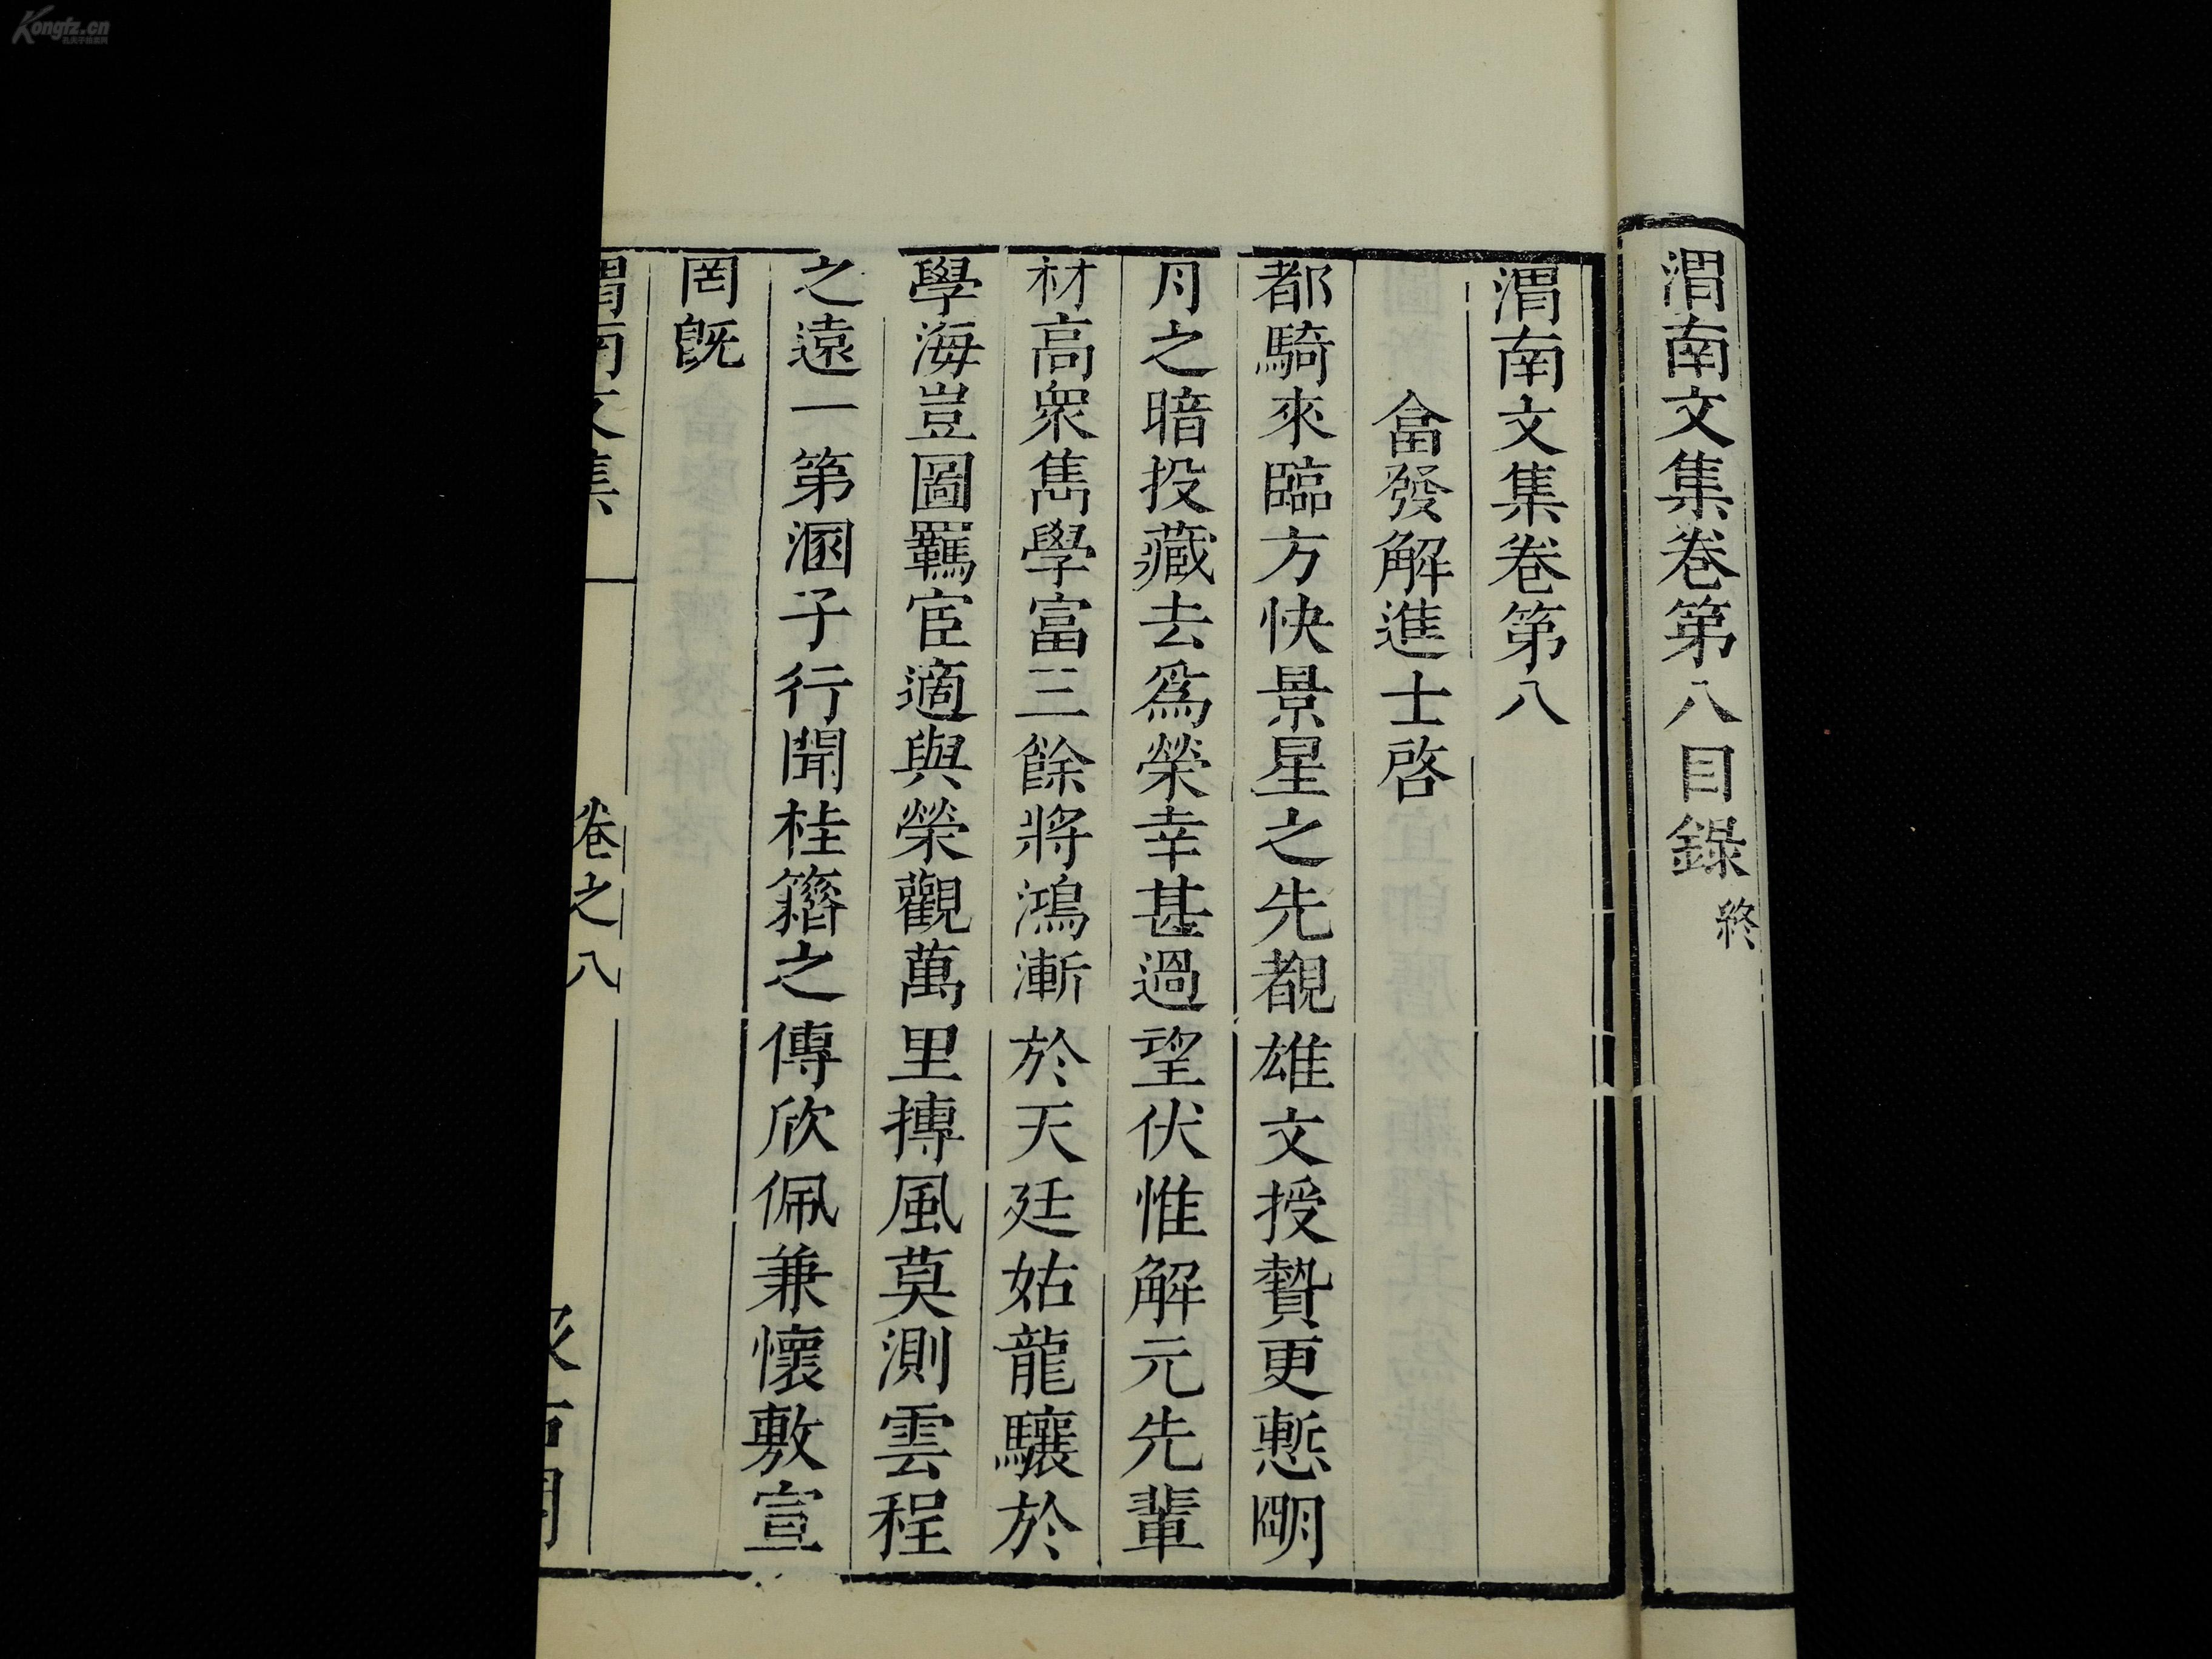 渭南文集卷第八目錄終
渭南文集卷第八
畣發解進士啓
都騎來臨方快景星之先覩雄文授贄更慙明
月之暗投藏去爲榮幸甚過望伏惟解元先輩
材高衆雋學富三餘將鴻漸於天廷姑龍驤於
學海豈圖羈宦適與榮觀萬里摶風莫測雲程
之遠一第溷子行聞桂籍之傳欣佩兼懷敷宣
罔旣
渭南文集
卷之八
Kongfz.cn